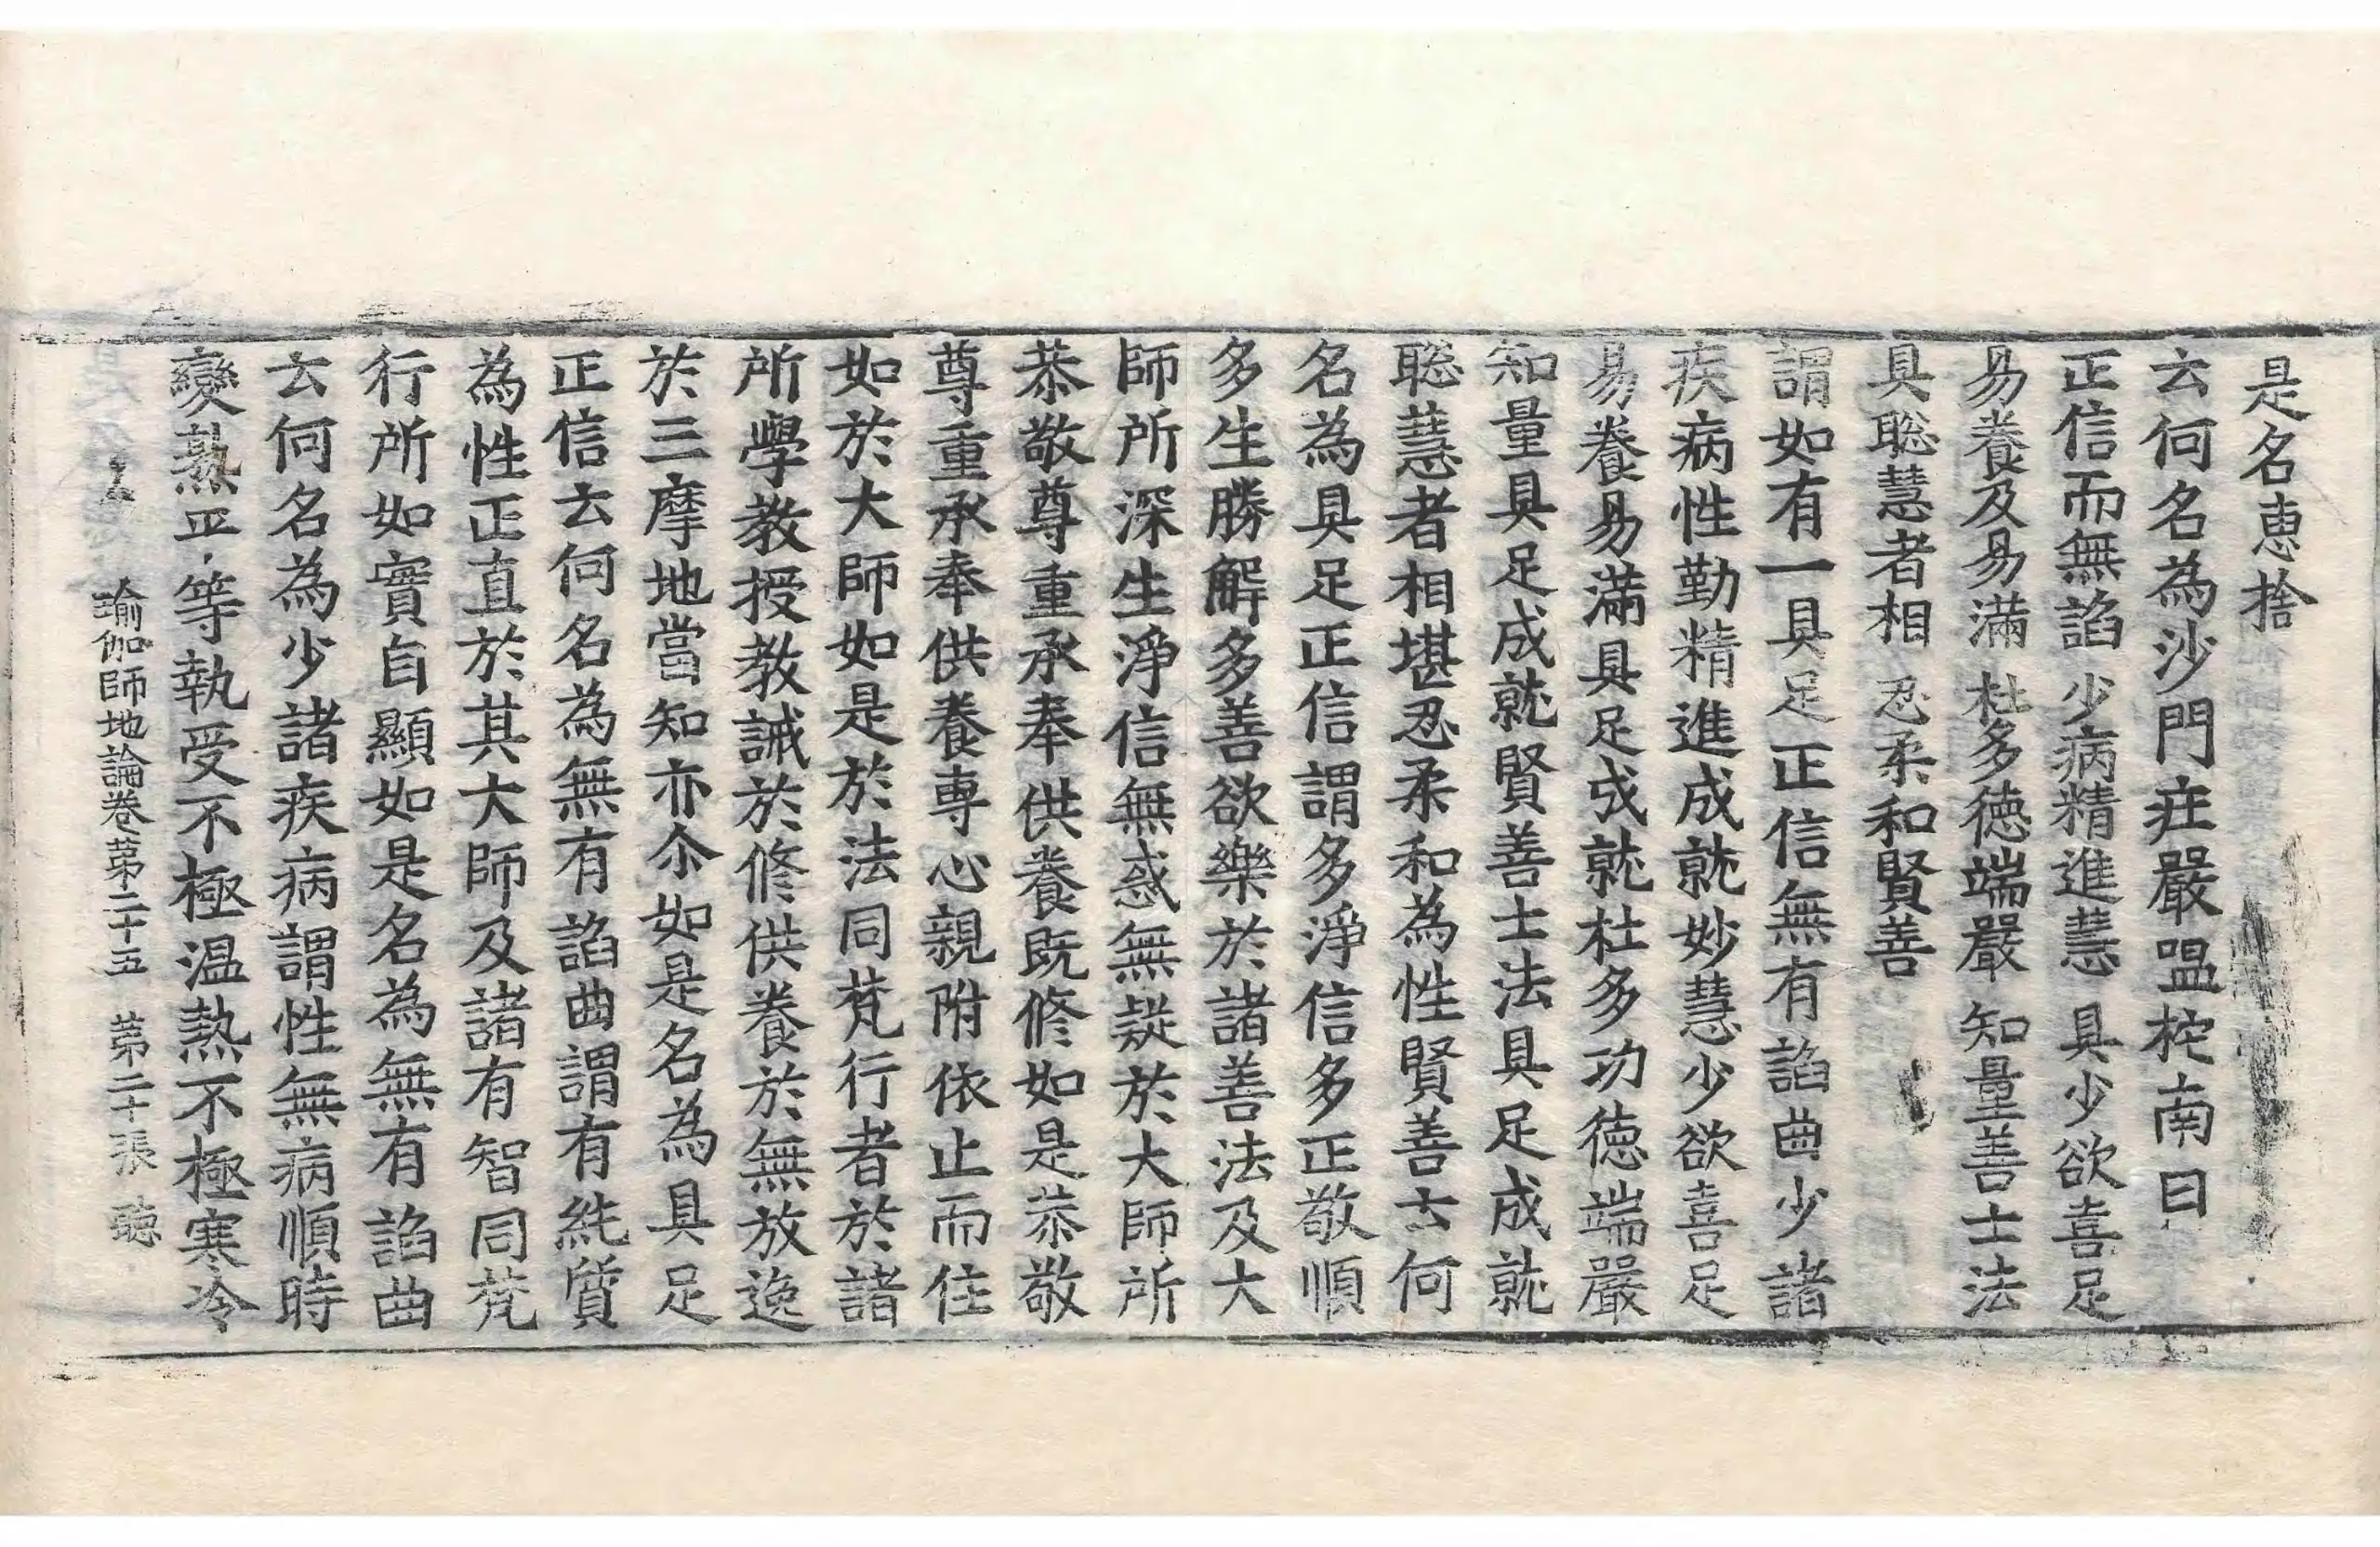 是名恵捨
云何名為沙門庄嚴嗢柁南曰
正信而無諂 少病精進慧 具少欲喜足
易養及易滿 杜多德端嚴 知量善士法
具聡慧者相 忍柔和賢善
謂如有一具足正信無有諂曲少諸
疾病性勤精進成就妙慧少欲喜足
易養易滿具足成就杜多功德端嚴
知量具足成就賢善士法具足成就
聡慧者相堪忍柔和為性賢善云何
名為具足正信謂多淨信多正敬順
多生勝解多善欲樂於諸善法及大
師所深生淨信無惑無疑於大師所
恭敬尊重承奉供養既修如是恭敬
尊重承奉供養專心親附依止而住
如於大師如是於法同梵行者於諸
所學教授教誡於修供養於無放逸
於三摩地當知亦尒如是名為具足
正信云何名為無有諂曲謂有純質
為性正直於其大師及諸有智同梵
行所如實自顯如是名為無有諂曲
云何名為少諸疾病謂性無病順時
變熟平等執受不極温熱不極寒冷
瑜伽師地論卷第二十五 第二十張 聴